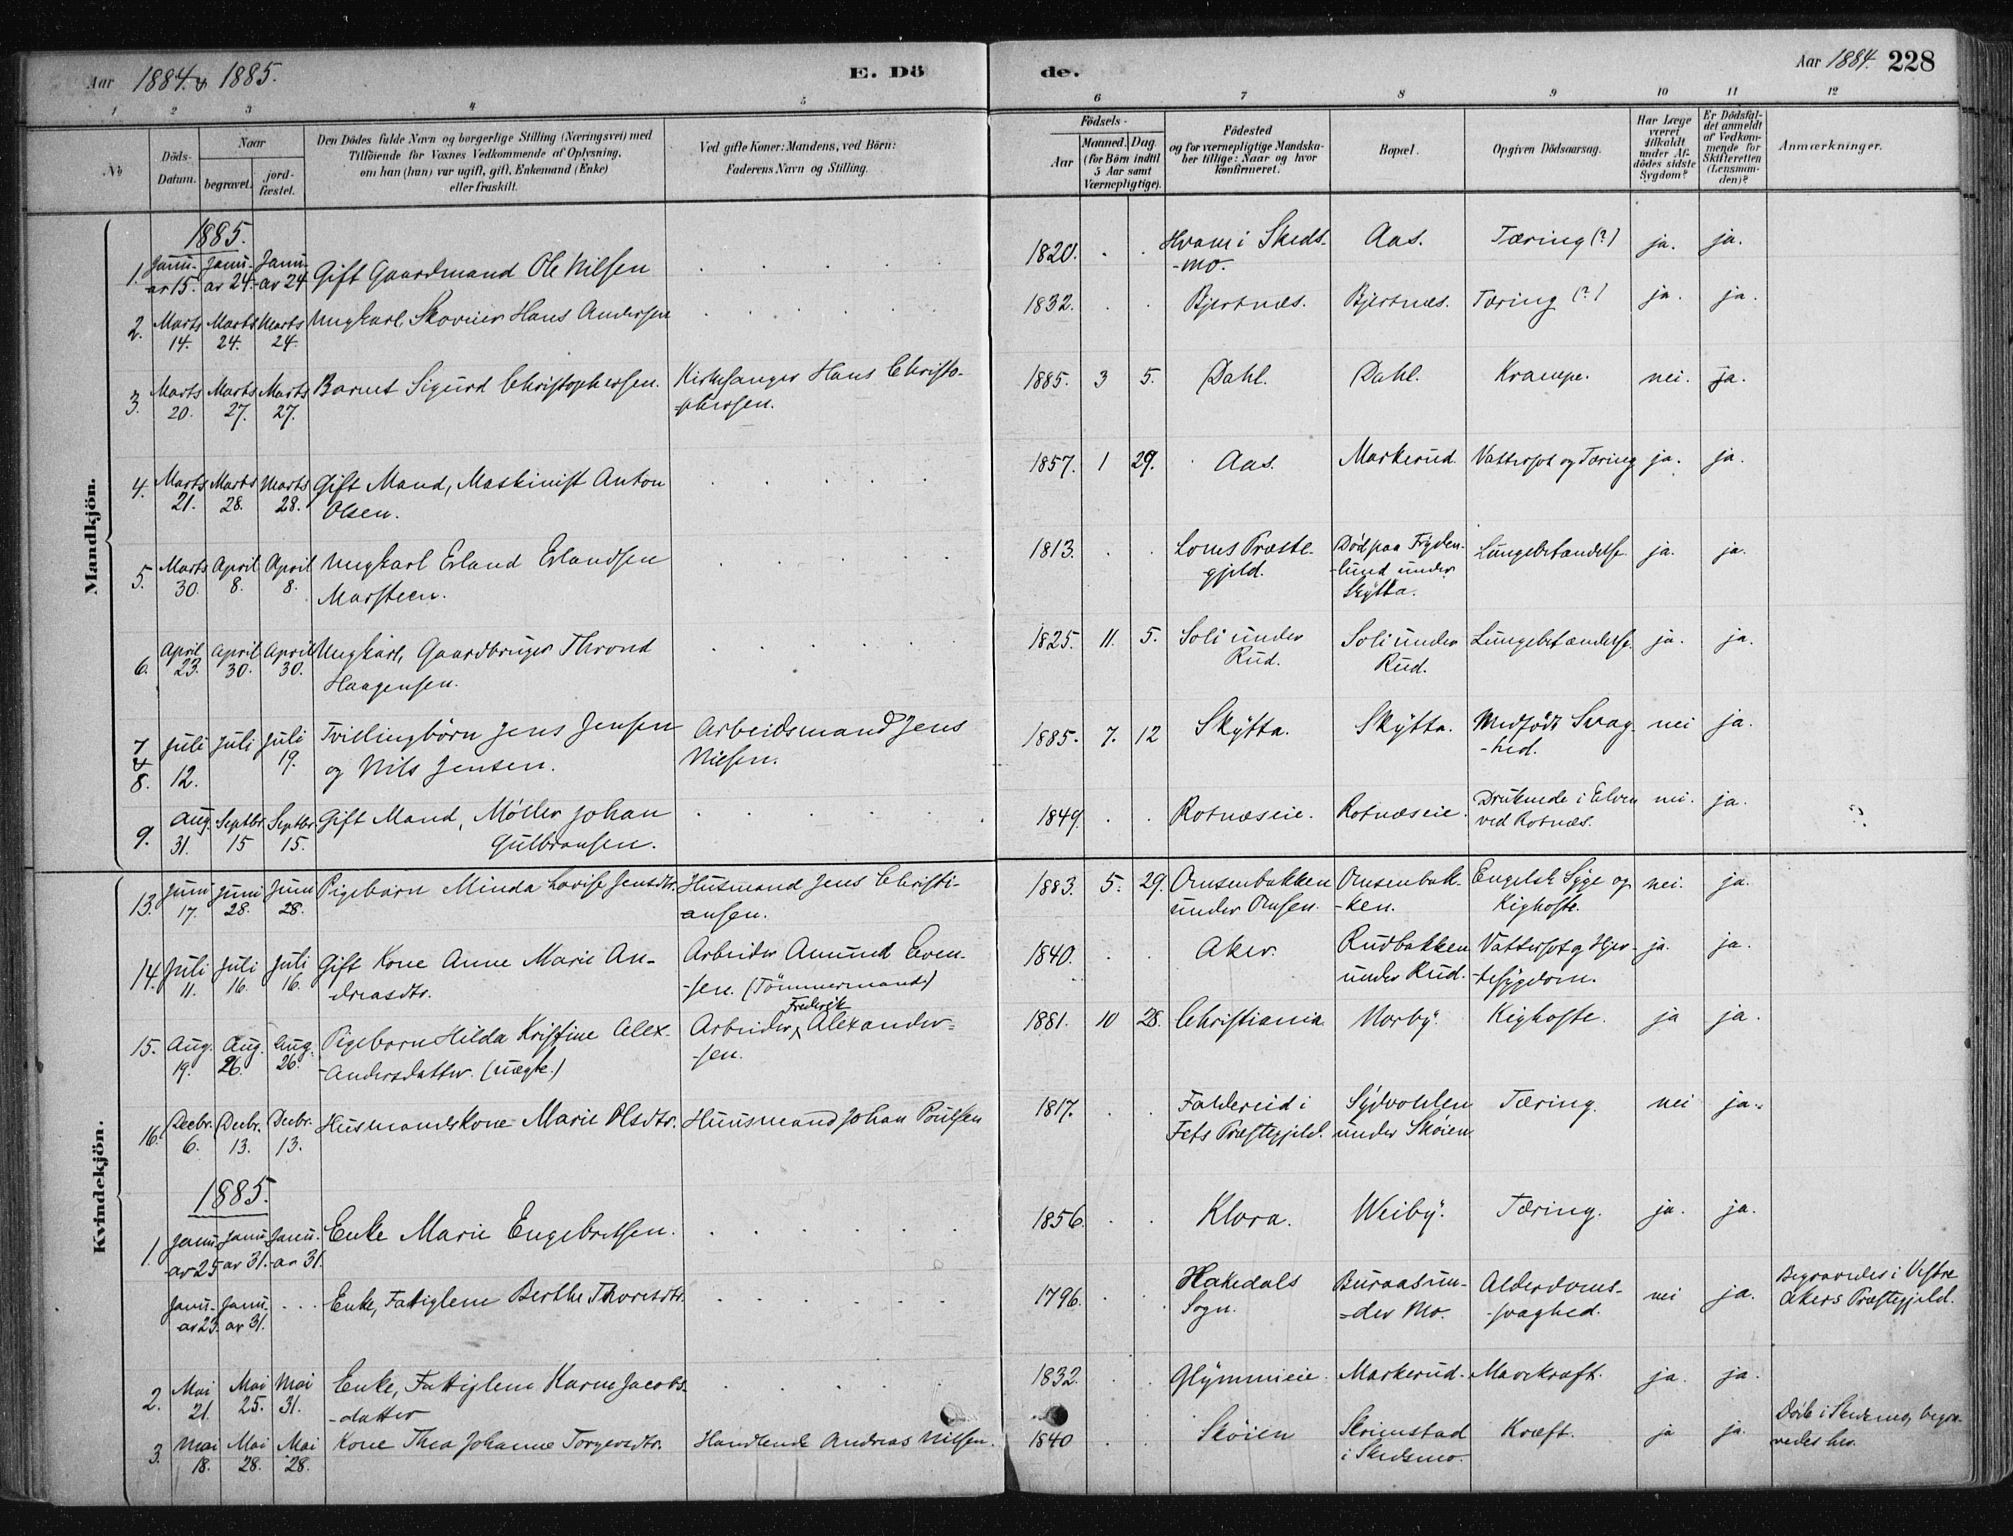 Aar 1884. & 1885.
E. Dö
de.
Aar 1884. 228
1 2 3 4 5 6 7 8 9 10 11 12
No
Döds-
Datum.
Naar
begravet.
jord-
fæstet.
Den Dödes fulde Navn og borgerlige Stilling (Næringsvei) med
Tilföiende for Voxnes Vedkommende af Oplysning,
om han (hun) var ugift, gift, Enkemand (Enke)
eller fraskilt.
Ved gifte Koner: Mandens, ved Börn:
Faderens Navn og Stilling.
Födsels-
Aar
Maaned. Dag.
(for Börn indtil
5 Aar samt
Værnepligtige).
Födested
og for værnepligtige Mandska-
ber tillige: Naar og hvor
konfirmeret.
Bopæl.
Opgiven Dödsaarsag.
Har Læge
været
tilkaldt
under Af-
dödes sidste
Sygdom?
Er Dödsfal-
det anmeldt
af Vedkom-
mende for
Skifteretten
(Lensman-
den)?
Anmærkninger.
Mandkjön.
1885.
1. Janu-ar 15. Janu-ar 24. Janu-ar 24 Gift Gaardmand Ole Nilsen 1820. Hvam i Skeds-mo. Aas. Tæring (?) ja. ja.
2. Marts 14. Marts 24. Marts 24. Ungkarl, Hans Andersen 1832. Bjertnæs. Bjertnæs. Tæring (?) ja. ja.
3. Marts 20. Marts 27. Marts 27. Barnet Sigurd Christophersen. Kirkesanger Hans Christo-phersen. 1885. 3 5. Dahl. Dahl. Krampe. nei. ja.
4. Marts 21. Marts 28. Marts 28. Gift Mand, Maskinist Anton Olsen. 1857. 1 29. Aas. Markerud. Vattersot og Tæring ja. ja.
5. Marts 30. April 8. April 8. Ungkarl Erland Erlandsen Marsteen. 1813. Loms Præste-gjeld. Död paa Fryden-lund under Skÿtta. Lungebetændelse ja. ja.
6. April 23. April 30. April 30. Ungkarl, Gaardbruger Thrond Haagensen. 1825. 11. 5. Soli under Rud. Soli under Rud. Lungebetændelse. ja. ja.
7 & 8. Juli 12. Juli Juli 19. Tvillingbörn Jens Jensen og Nils Jensen. Arbeidsmand Jens Nilsen. 1885. 7. 12 Skÿtta. Skÿtta. Medfödt Svag-hed. nei ja.
9. Aug. 31. Septbr. 15 Septbr. 15. Gift Mand, Møller Johan Gulbransen. 1849. Rotnæseie. Rotnæseie. Druknede i Elven ved Rotnæs. nei. ja.
Kvindekjön.
13. Juni 17. Juni 28. Juni 28. Pigebarn Minda Lovise Jensdtr. Husmand Jens Christi-ansen. 1883. 5. 29. Ornsenbakken under Ornsen. Ornsenbak-ken. Engelsk Syge og Kighoste. nei. ja.
14. Juli 11. Juli 16. Juli 16. Gift Kone Anne Marie An-dreasdtr. Arbeider Amund Even-sen. (Tömmermand) 1840. Aker. Rudbakken under Rud. Vattersot og Hjer-tesygdom. ja. ja.
15. Aug. 19. Aug. 26. Aug. 26. Pigebarn Hilda Kristine Alex-andersdatter. (uægte.) Arbeider Frederik Alexander-sen. 1881. 10 28. Christiania Morby. Kighoste. ja ja.
16. Decbr. 6. Decbr. 13. Decbr. 13. Husmandskone Marie Olsdtr. Huusmand Johan Poulsen 1817. i Fets Præstegjeld. under Skøien Tæring. nei ja.
1885.
1. Janu-ar 25 Janu-ar 31. Janu-ar 31. Enke Marie Engebretsen. 1856. Klora. Weibÿ. Tæring. ja. ja.
Janu-ar 23. Janu-ar 31. Enke, Fattiglem Berthe Thoresdtr. 1796. Hakedals Sogn. Buraasun-der Mo. Alderdoms-svaghed. nei ja. Begravedes i Vestre Akers Præstegjeld.
2. Mai 21. Mai 25. Mai 31. Enke, Fattiglem Karen Jacobs-datter 1832. Glÿmmieie. Markerud. Mavekræft. ja. ja.
3. Mai 18. Mai 28. Mai 28. Kone Thea Johanne Torgersdtr. Handlende Andreas Nilsen. 1840 Skøien Skrimstad i Skedsmo. Kræft. ja ja. Döde i Skedsmo, begra-vedes her.